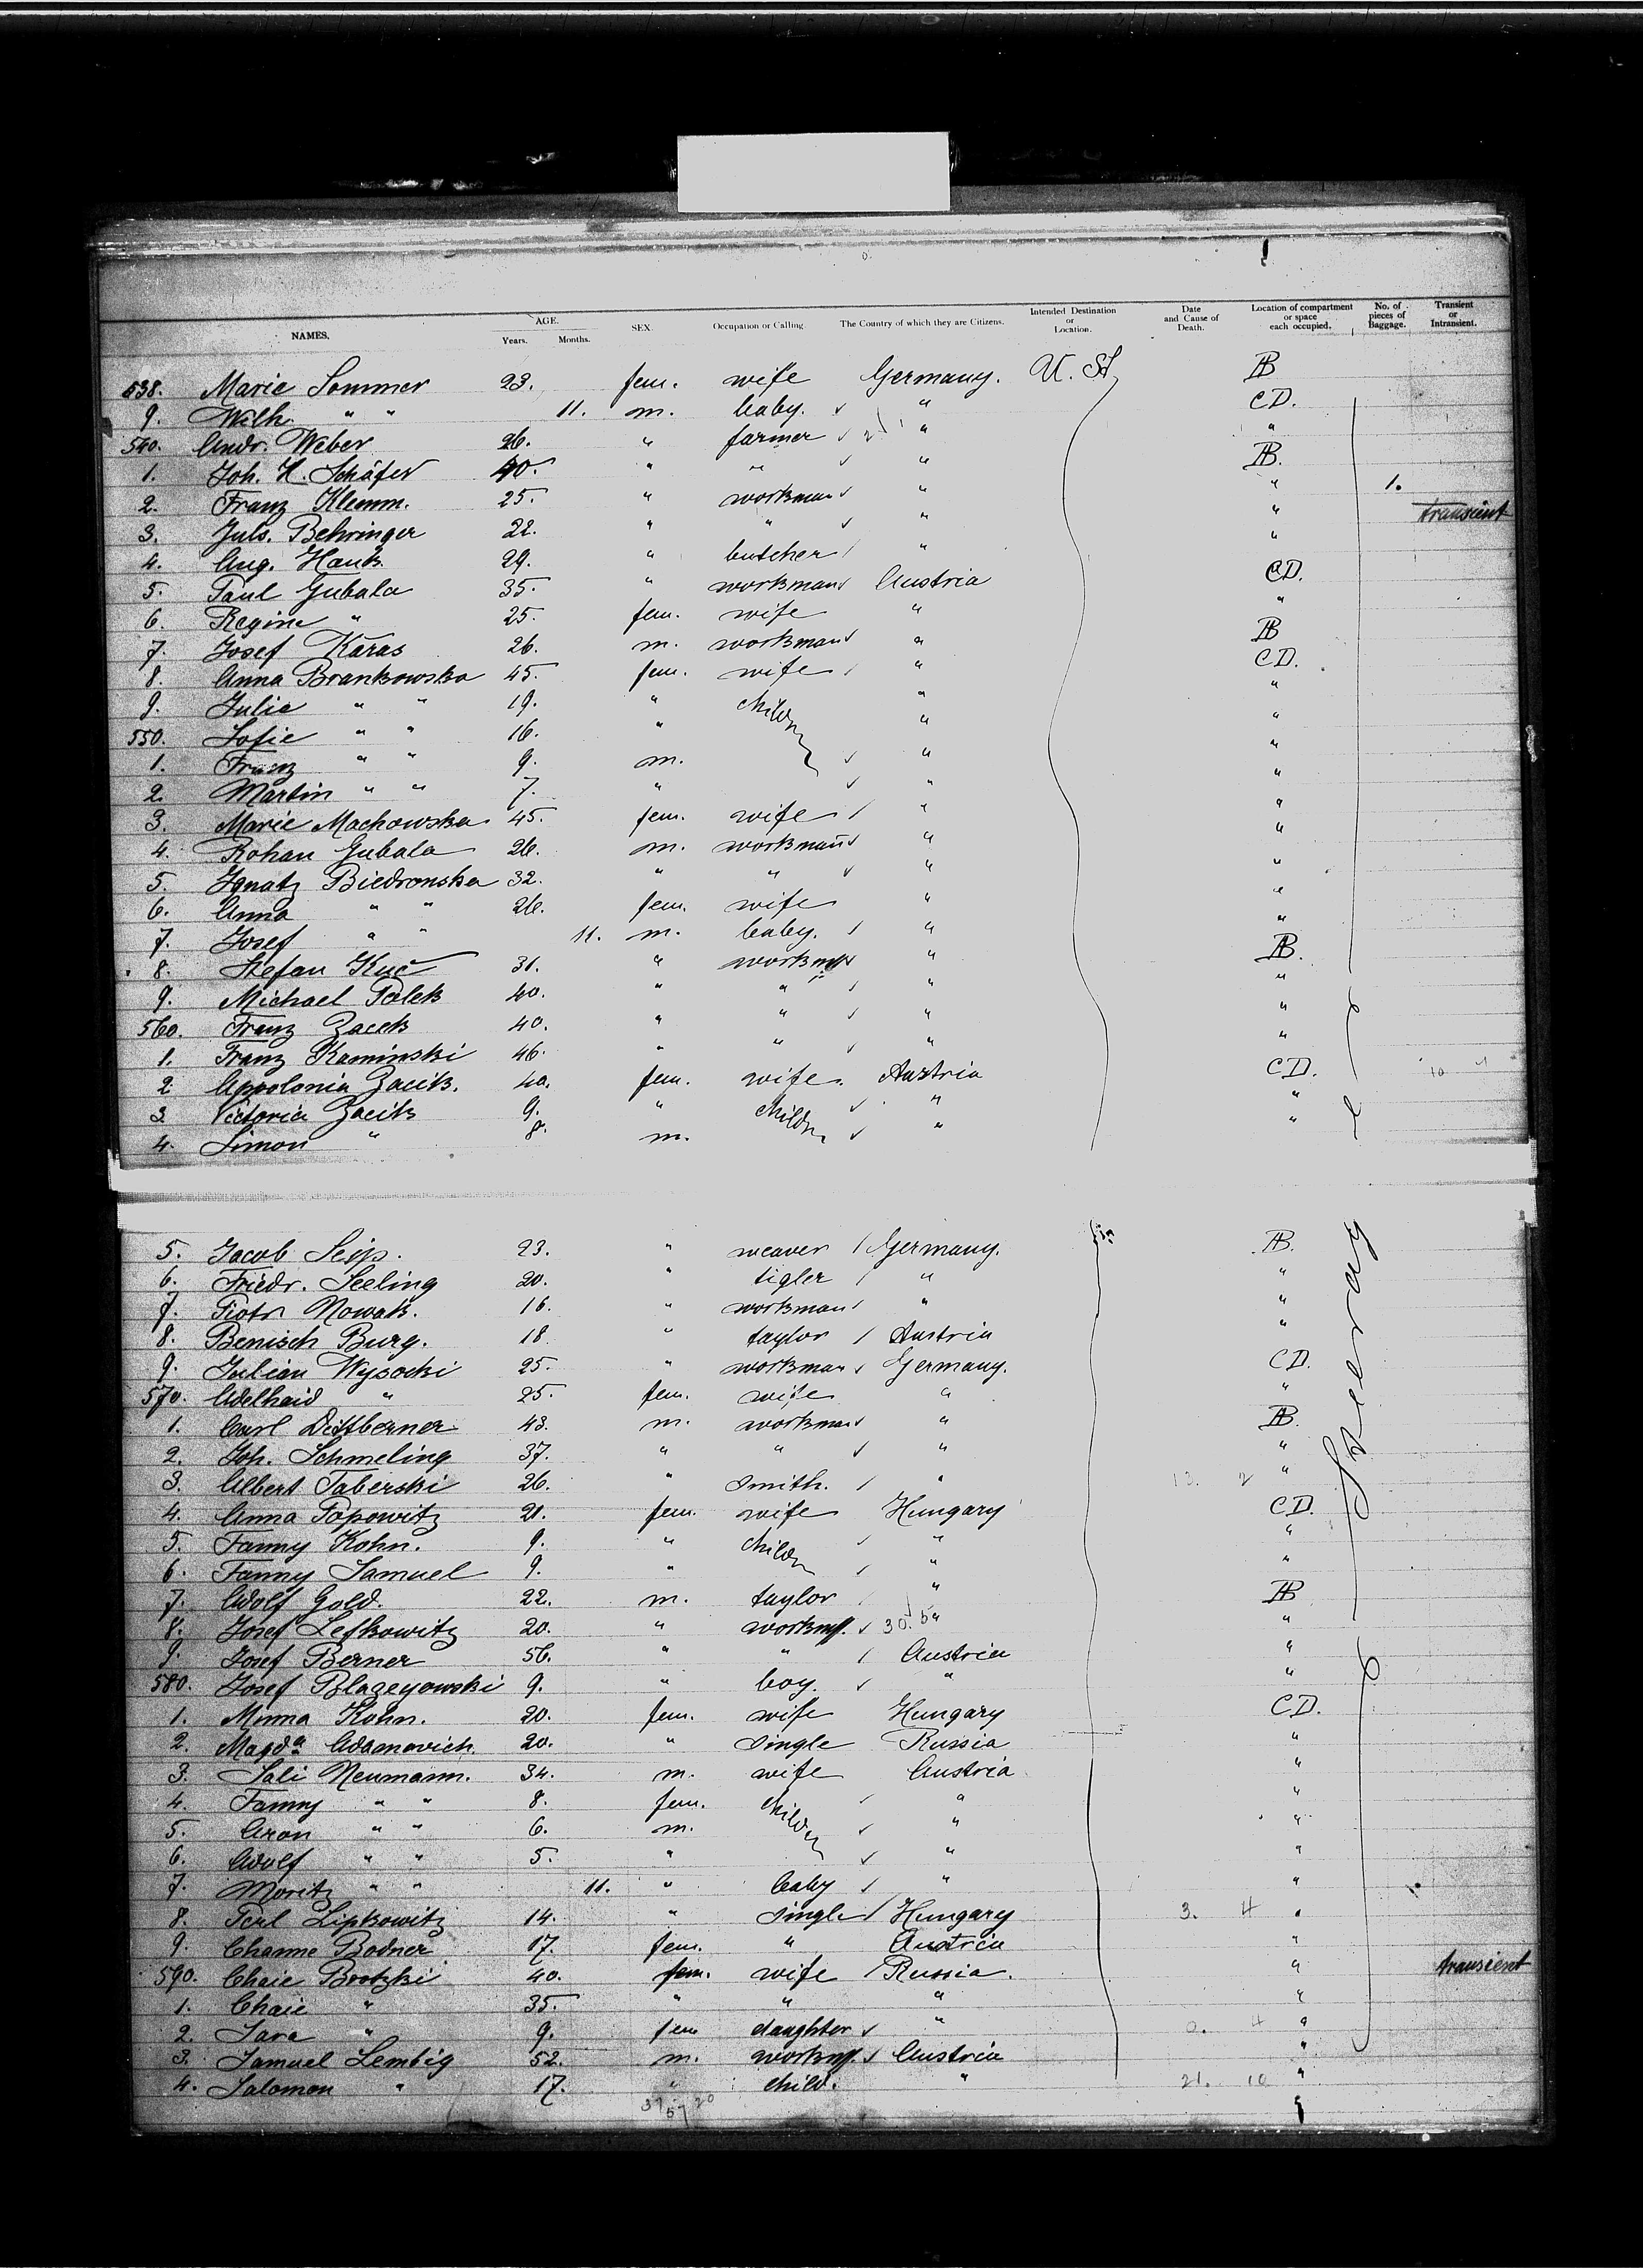 NAMES. AGE. Years. Months. SEX. Occupation or Calling The Country of which they are Citizens. Intended Destination or Location. Date and Cause of Death. Location of compartment or space each occupied. No. of pieces of Baggage. Transient or Intransient.
538. Marie Sommer 23. fem. wife Germany. U. St. AB
9. Wilh. " " 11. m. baby. " CD.
540. Andr. Weber 26. " farmer " "
1. Joh. H. Schäfer 40. " " " AB.
2. Franz Klemm. 25. " workman " " 1.
3. Juls. Behringer 22. " " " " transient
4. Aug. Hank 29. " butcher " "
5. Paul Gubala 35. " workman Austria CD.
6. Regine " 25. fem. wife " "
7. Josef Karas 26. m. workman " AB
8. Anna Brankowska 45. fem. wife " CD.
9. Julie " " 19. " childn " "
550. Sofie " " 16. " " "
1. Franz " " 9. m. " "
2. Martin " " 7. " " "
3. Marie Machowska 45. fem. wife " "
4. Rohan Gubala 26. m. workman " "
5. Ignatz Biedronska 32. " " " "
6. Anna " " 26. fem. wife " "
7. Josef " " 11. m. baby. " "
8. Stefan Kuc 31. " workm " AB.
9. Michael Polek 40. " " " "
560. Franz Zacek 40. " " " "
1. Franz Kaminski 46. " " " "
2 Appolonia Zacik. 40. fem. wife. Austria CD.
3. Victoria Zacik 9. " childn " "
4. Simon " 8. m. " "
5. Jacob Seip. 23. " weaver Germany. AB.
6. Friedr. Seeling 20. " tigler " "
7. Piotr Nowak. 16. " workman " "
8. Benisch Burg. 18 " taylor Austria "
9. Julian Wysocki 25. " workman Germany. CD.
570. Adelhaid " 25. fem. wife " "
1. Carl Dittberner 43. m. workman " AB.
2. Joh. Schmeling 37. " " " "
3. Albert Taberski 26. " smith. " "
4. Anna Popowitz 21. fem. wife Hungary CD.
5. Fanny Kohn. 9. " childn " "
6. Fanny Samuel 9. " " "
7. Adolf Gold. 22. m. taylor " AB
8. Josef Lefkowitz 20. " workm. " "
9. Josef Berner 56. " " Austria "
580. Josef Blazeyowski 9. " boy. " "
1. Minna Kohn. 20. fem. wife Hungary CD.
2. Magda Adamovich. 20. " single Russia "
3. Sali Neumann. 34. m. wife Austria "
4. Fanny " " 8. fem. childn " "
5. Aron " " 6. m. " "
6. Adolf " " 5. " " "
7. Moritz " " 11. " baby " "
8. Perl Lipkowitz 14. " single Hungary 3. 4 "
9. Channe Bodner 17. fem. " Austria "
590. Chaie Brotzki 40. fem. wife Russia. " transient
1. Chaie " 35. " " " "
2. Sara " 9. fem daughter " 4 "
3. Samuel Lembig 52. m. workm. Austria "
4. Salomon " 17. " child. " 21. 10 "
Steerage